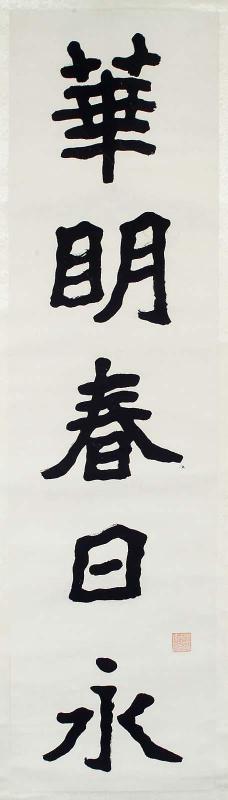 華明春日永